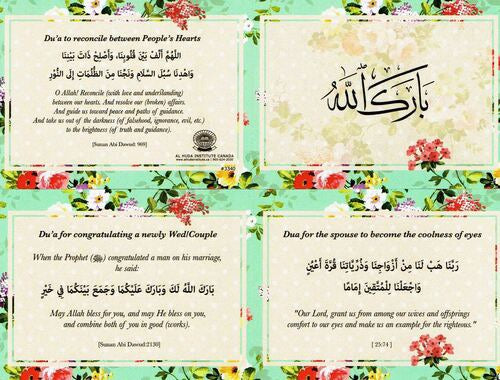 Du'a to reconcile between People's Hearts
اللَّهُمَّ أَلِّفْ بَيْنَ قُلُوبِنَا، وَأَصْلِحْ ذَاتَ بَيْنِنَا
وَاهْدِنَا سُبُلَ السَّلَامِ وَنَجِّنَا مِنَ الظُّلُمَاتِ إِلَى النُّوْرِ
O Allah! Reconcile (with love and understanding)
between our hearts. And resolve our (broken) affairs.
And guide us toward peace and paths of guidance.
And take us out of the darkness (of falsehood, ignorance, evil, etc.)
to the brightness (of truth and guidance).
[Sunan Abi Dawud: 969]
AL HUDA INSTITUTE CANADA
#3340
بَارَكَ اللهُ
Du'a for congratulating a newly Wed/Couple
When the Prophet (ﷺ) congratulated a man on his marriage,
he said:
بَارَكَ اللَّهُ لَكَ وَبَارَكَ عَلَيْكُمَا وَجَمَعَ بَيْنَكُمَا فِي خَيْرٍ
May Allah bless for you, and may He bless on you,
and combine both of you in good (works).
[Sunan Abi Dawud:2130]
Dua for the spouse to become the coolness of eyes
رَبَّنَا هَبْ لَنَا مِنْ أَزْوَاجِنَا وَذُرِّيَّاتِنَا قُرَّةَ أَعْيُنٍ
وَاجْعَلْنَا لِلْمُتَّقِينَ إِمَامًا
"Our Lord, grant us from among our wives and offsprings
comfort to our eyes and make us an example for the righteous."
[ 25:74 ]